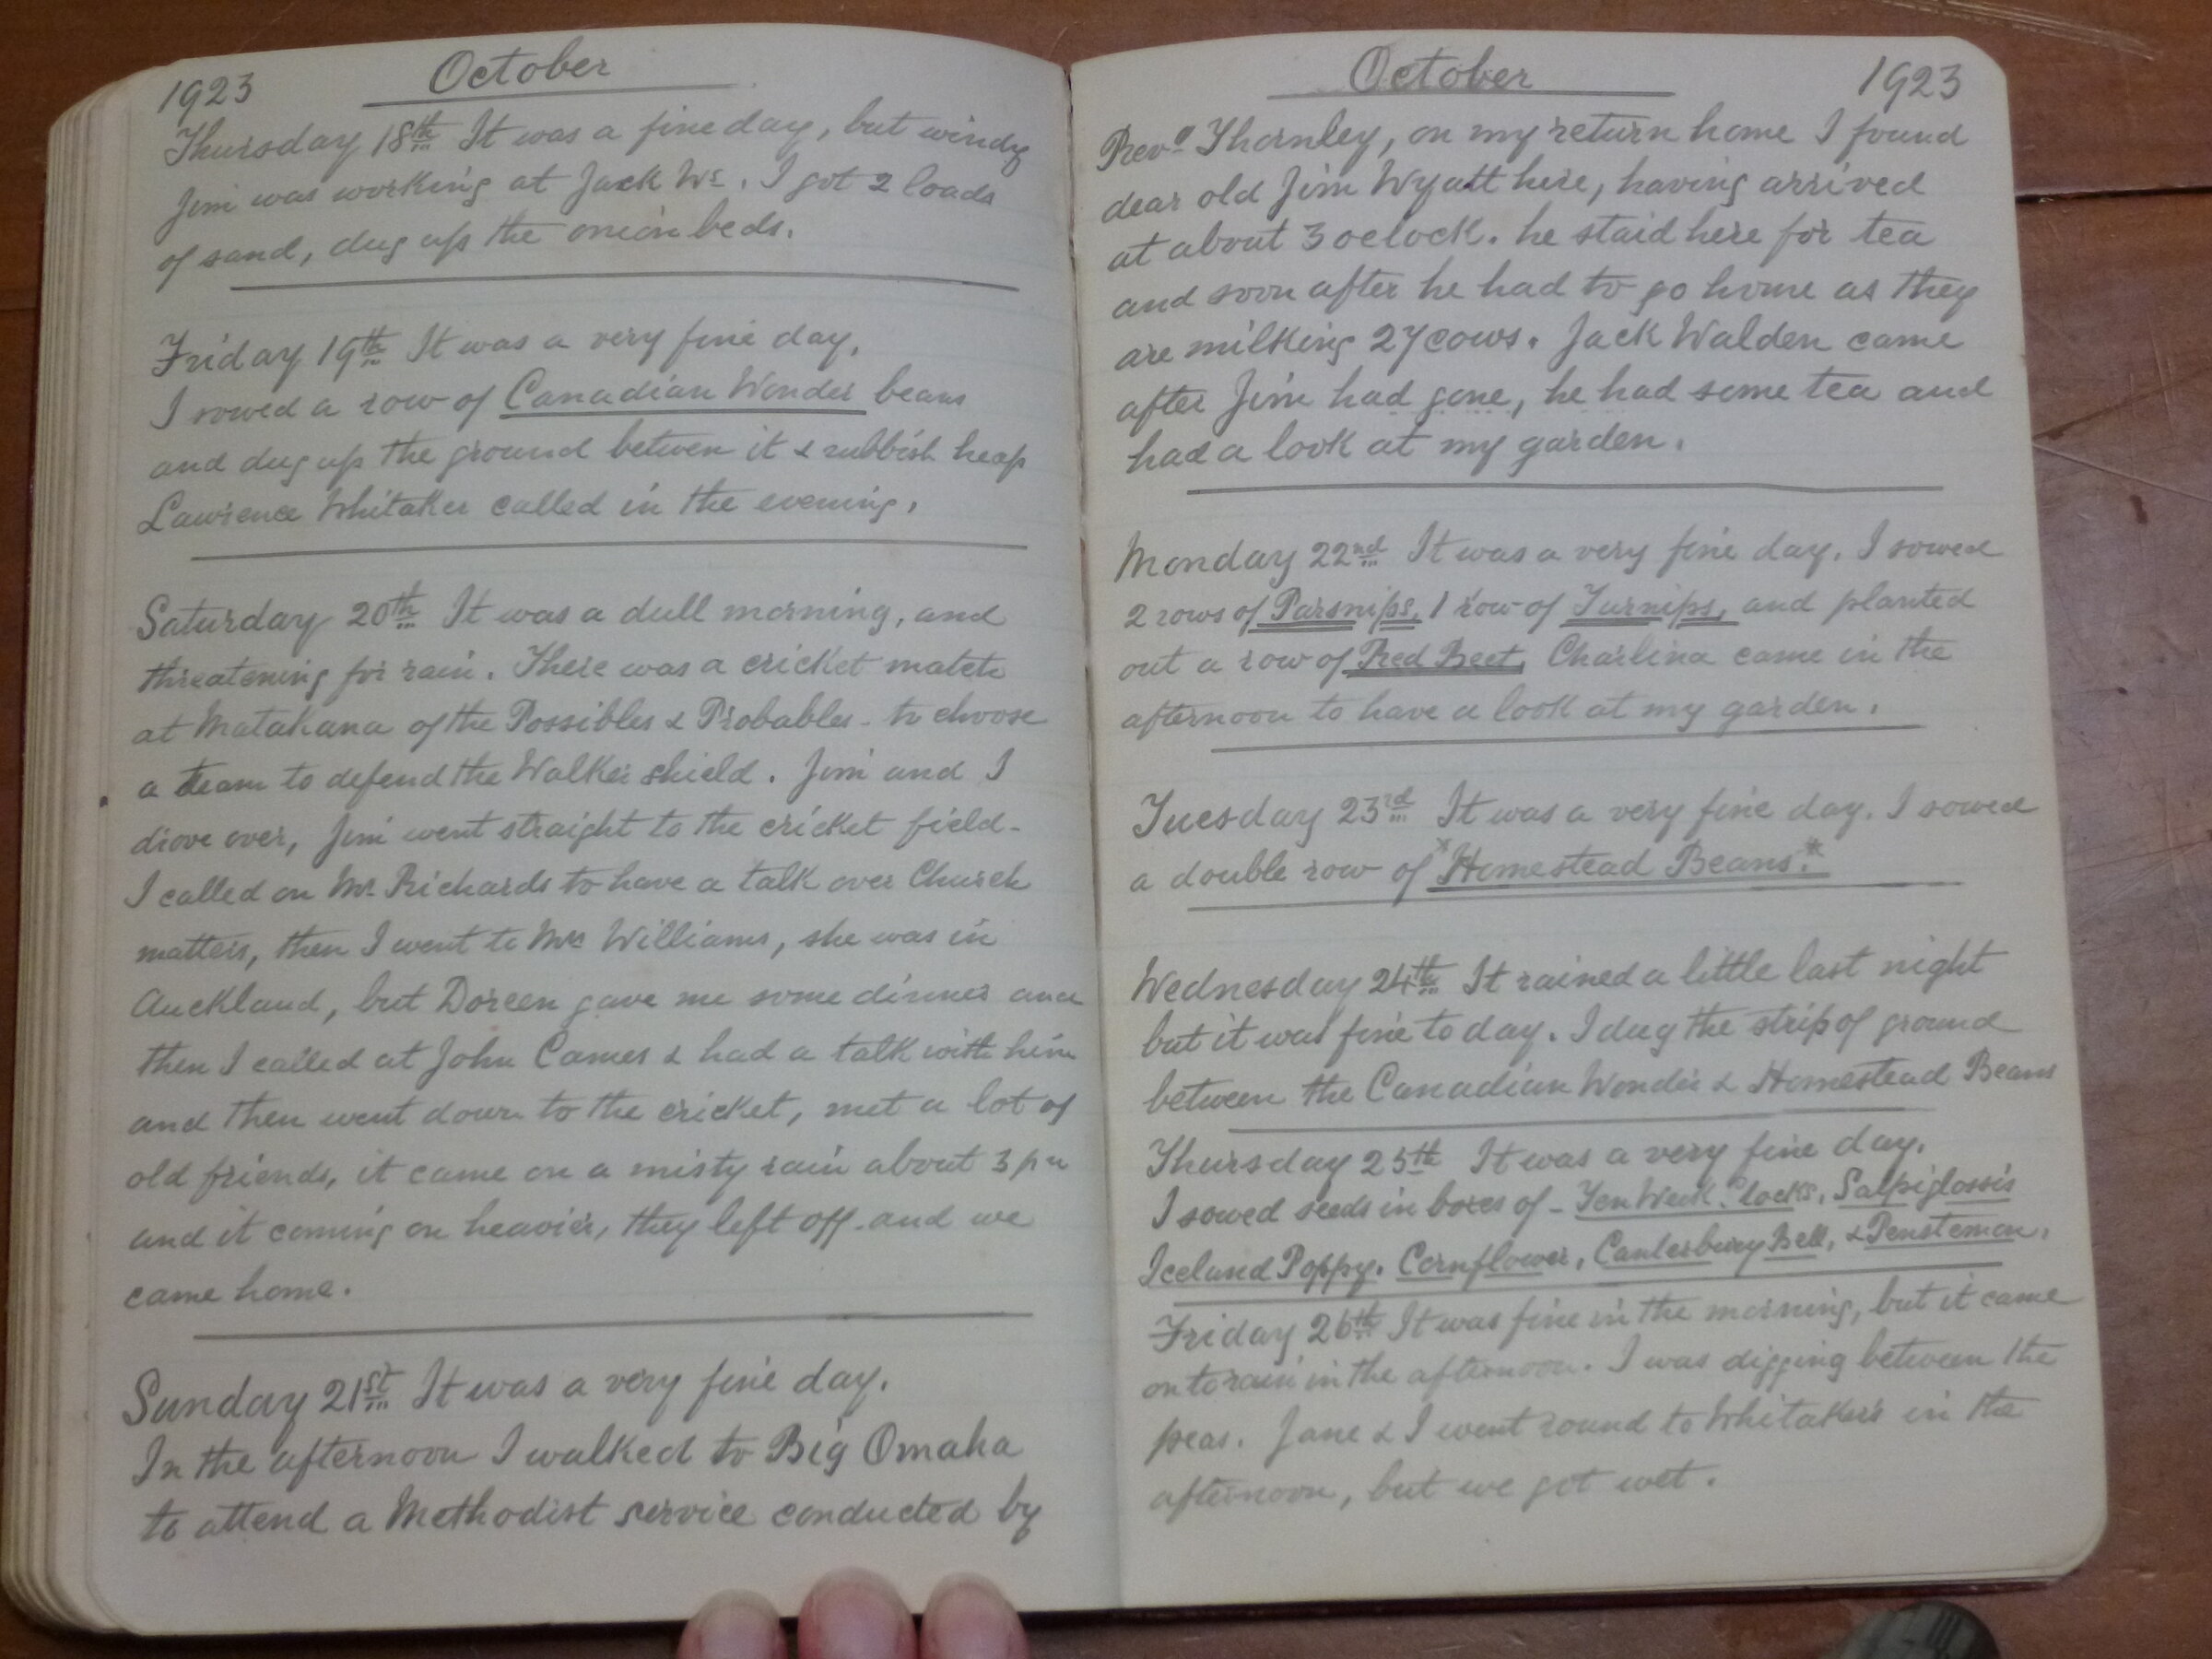 1923 October
Thursday 18th It was a fine day, but windy
Jim was working at Jack Ws. I got 2 loads
of sand, dug up the onion beds.
Friday 19th It was a very fine day.
I sowed a row of Canadian Wonder beans
and dug up the ground betwen it & rubbish heap
Lawrence Whitaker called in the evening.
Saturday 20th It was a dull morning, and
threatening for rain. There was a cricket match
at Matakana of the Possibles & Probables - to choose
a team to defend the Walker shield. Jim and I
drove over, Jim went straight to the cricket field -
I called on Mr. Richards to have a talk over Church
matters, then I went to Mrs Williams, she was in
Auckland, but Doreen gave me some dinner and
then I called at John Cames & had a talk with him
and then went down to the cricket, met a lot of
old friends, it came on a misty rain about 3 pm
and it coming on heavier, they left off and we
came home.
Sunday 21st It was a very fine day.
In the afternoon I walked to Big Omaha
to attend a Methodist service conducted by
October 1923
Revd Thornley, on my return home I found
dear old Jim Wyatt here, having arrived
at about 3 oclock. he staid here for tea
and soon after he had to go home as they
are milking 27 cows. Jack Walden came
after Jim had gone, he had some tea and
had a look at my garden.
Monday 22nd It was a very fine day. I sowed
2 rows of Parsnips, 1 row of Turnips, and planted
out a row of Red Beet. Charlina came in the
afternoon to have a look at my garden.
Tuesday 23rd It was a very fine day. I sowed
a double row of *Homestead Beans.*
Wednesday 24th It rained a little last night
but it was fine to day. I dug the strip of ground
between the Canadian Wonder & Homestead Beans
Thursday 25th It was a very fine day.
I sowed seeds in boxes of - Ten Week Stocks, Salpiglossis
Iceland Poppy. Cornflower, Canterbury Bell, & Penstemon.
Friday 26th It was fine in the morning, but it came
on to rain in the afternoon. I was digging between the
peas. Jane & I went round to Whitaker's in the
afternoon, but we got wet.